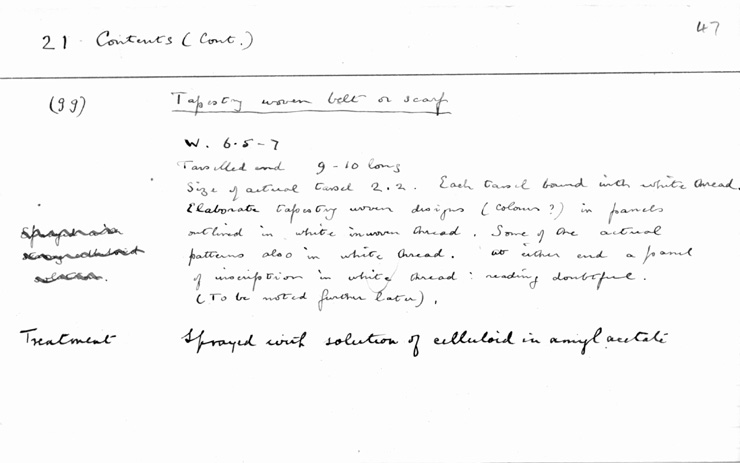 47
21 Contents (Cont.)
(gg) Tapestry woven belt or scarf
W. 6.5-7
Tasselled end 9-10 long
Size of actual tassel 2.2. Each tassel bound with white thread.
Elaborate tapestry woven designs (colours?) in panels
outlined in white inwoven thread. Some of the actual
patterns also in white thread. At either end a panel
of inscription in white thread: reading doubtful.
(To be noted further later).
Treatment Sprayed with solution of celluloid in amyl acetate